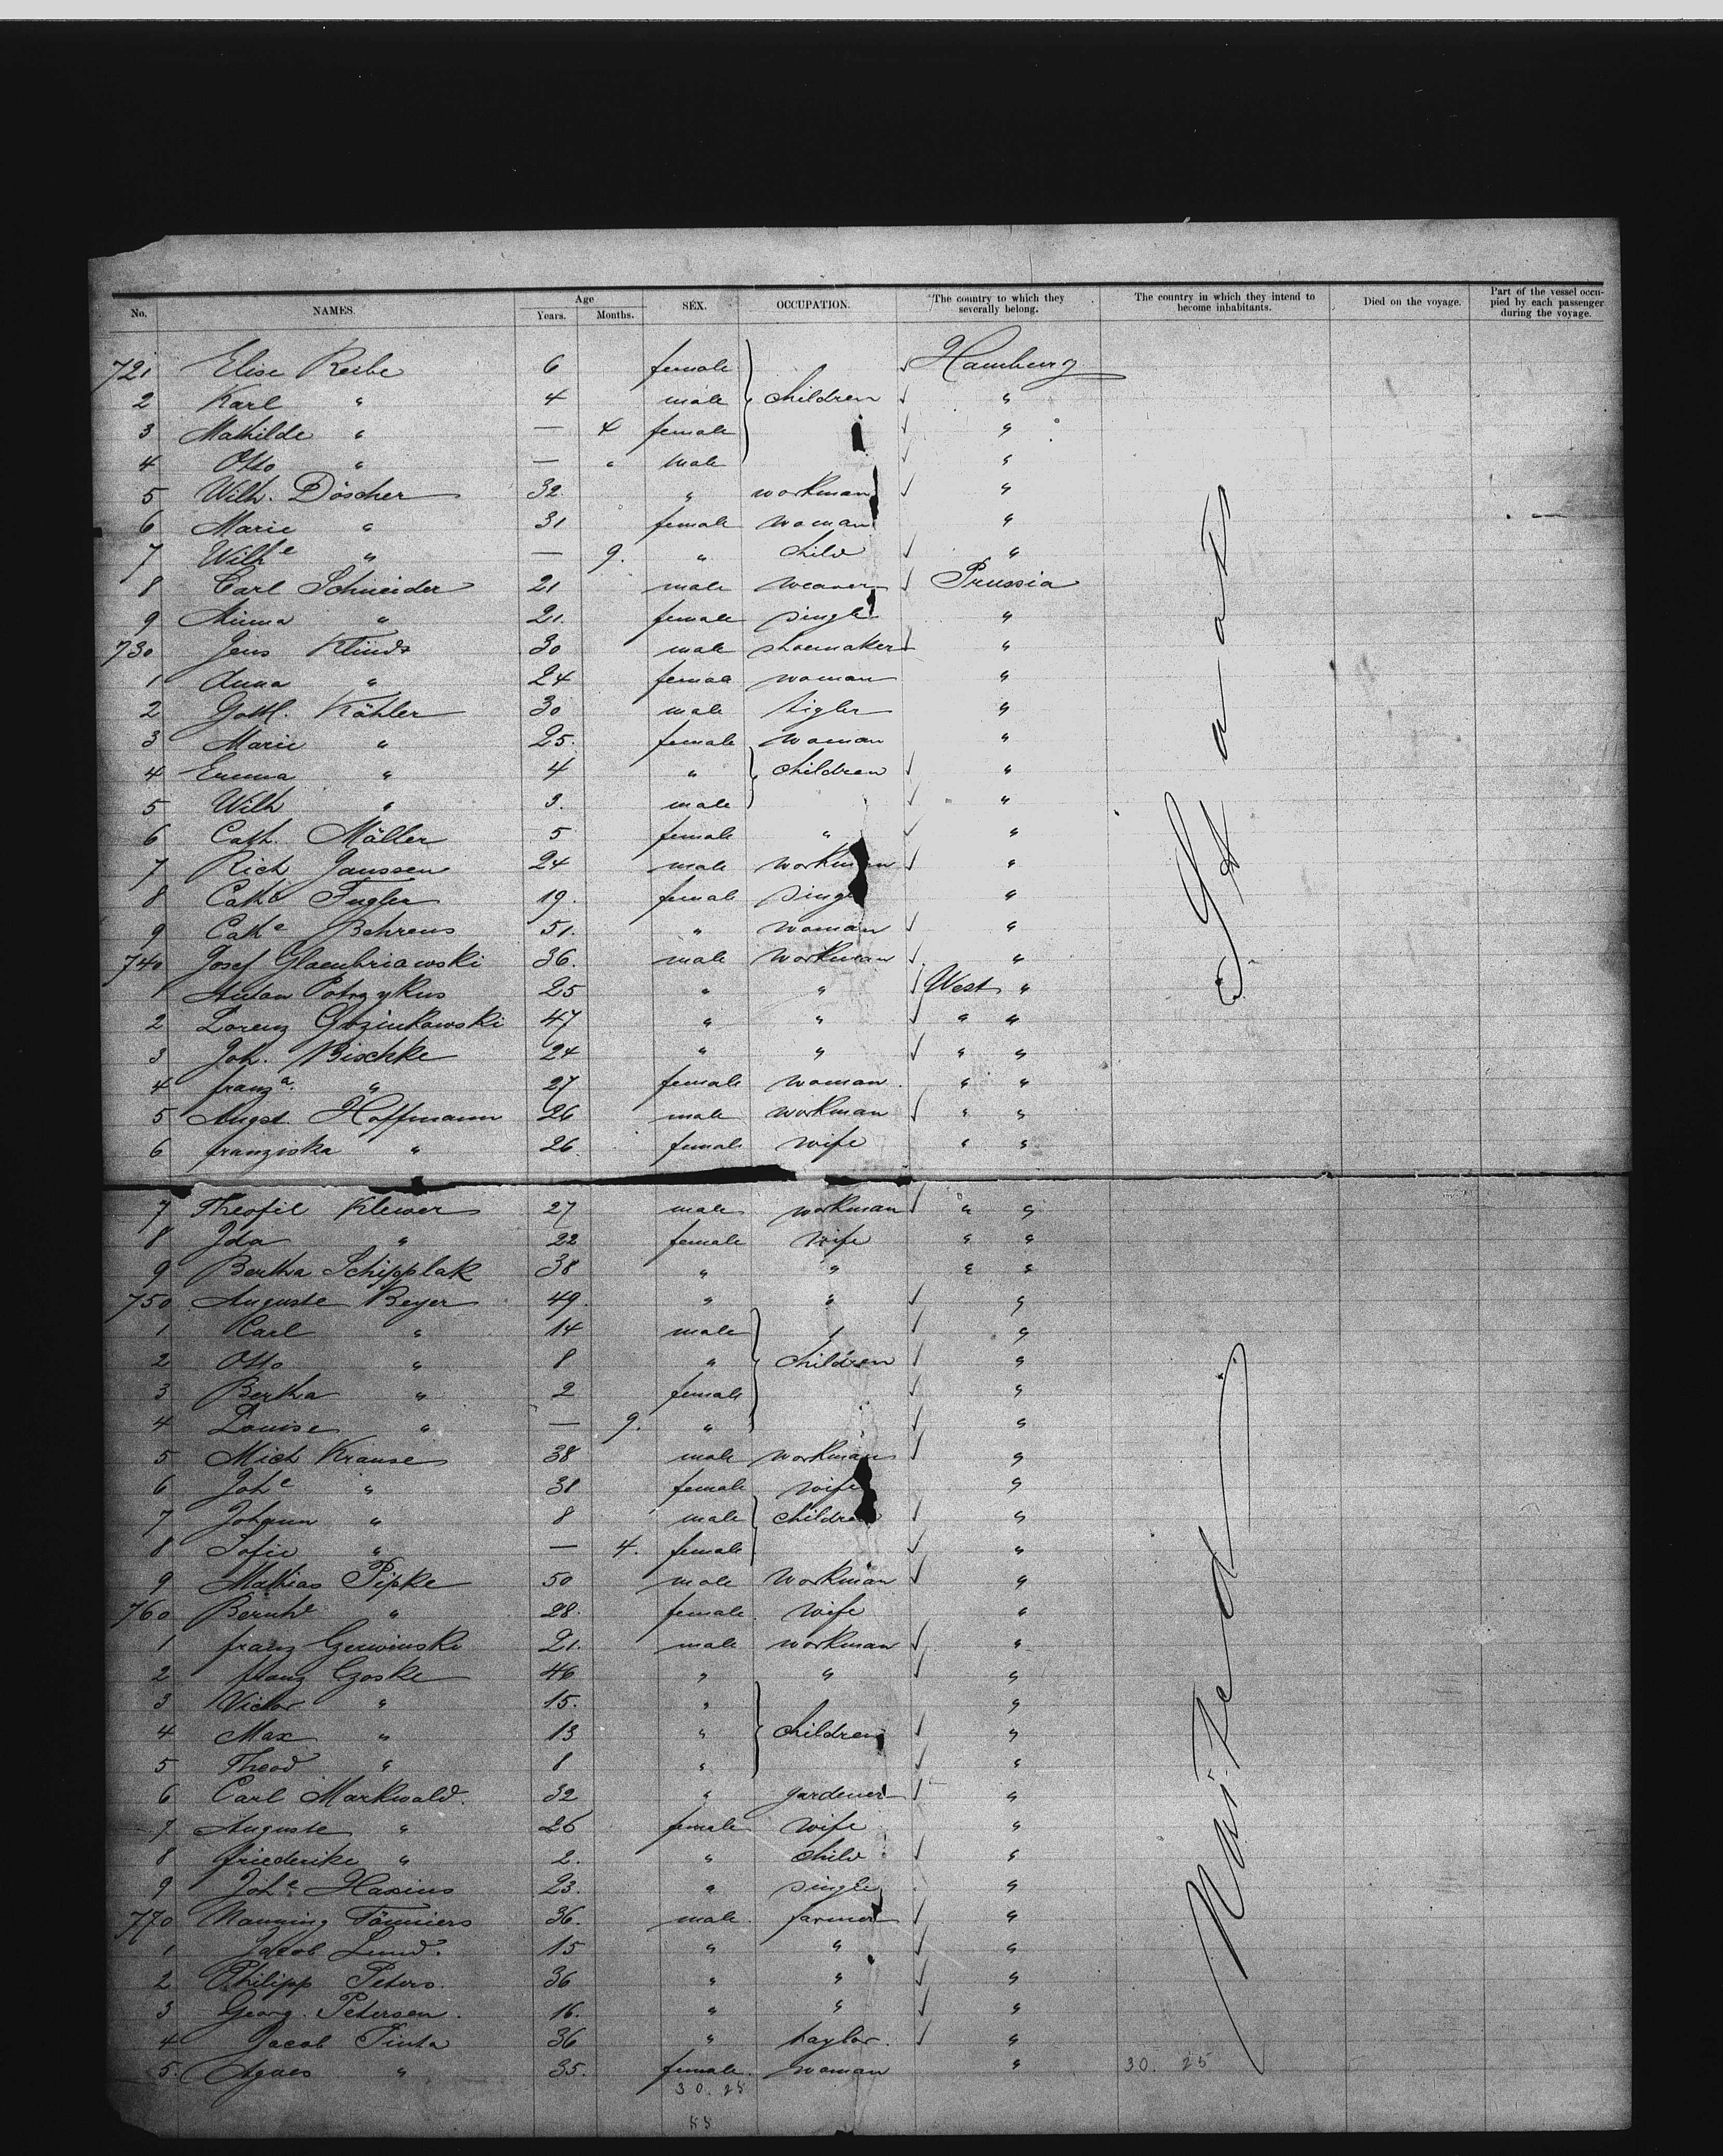 No. NAMES. Age Years. Months. SEX. OCCUPATION. The country to which they severally belong. The country in which they intend to become inhabitants. Died on the voyage. Part of the vessel occupied by each passenger during the voyage.
721 Elise Reibe 6 female Hamburg
2 Karl " 4 male children "
3 Mathilde " — 4 female "
4 Otto " — " male "
5 Wilh. Döscher 32 " workman "
6 Marie " 31 female woman "
7 Wilhe " — 9. " child "
8 Carl Schneider 21 male weaver Prussia
9 Minna " 21. female single "
730 Jens 30 male shoemaker "
1 Anna " 24 femaa woman "
2 Gottl. Köhler 30 male tigler "
3 Marie " 25. female woman "
4 Emma " 4 " children "
5 Wilh " 3. male "
6 Cath. Möller 5 female " "
7 Rich Janssen 24 male workman "
8 Cathe Fugler 19. female single "
9 Cathe Behrens 51. " woman "
740 Josef 36. male workman "
1 Anton Potrzykus 25 " " West "
2 Lorenz 47 " " " "
3 Joh. Bischke 24 " " " "
4 franza. " 27 female woman " "
5 Augst. Hoffmann 26 male workman " "
6 franziska " 26 female wife " "
7 Theofil Klewer 27 male workman " "
8 Ida " 22 female wife " "
9 Bertha Schipplak 38 " " " "
750 Auguste Beyer 49. " " "
1 Carl " 14 male "
2 Otto " 8 " children "
3 Bertha " 2 female "
4 Louise " — 9. " "
5 Mich Krause 38 male workman "
6 Johe " 31 female wife "
7 Johann " 8 male children "
8 Sofie " — 4. female "
9 Mathias Pipke 50 male workman "
760 Bernhe " 28. female wife "
1 franz 21. male workman "
2 franz Czoske 46 " " "
3 Victor " 15. " "
4 Max " 13 " children "
5 Theod " 8 " "
6 Carl Markwald. 32 " gardener "
7 Auguste " 26 female wife "
8 friederike " 2. " child "
9 Johe Harius 23. " single "
770 Manning Tönniers 36. male farmer "
1 Jacob Lund. 15 " " "
2 Philipp Peters. 36 " " "
3 Georg. Petersen. 16. " " "
4 Jacob Pinta 36 " taylor. "
5. Agnes " 35. female. woman "
30. 25
30. 25
55
United States